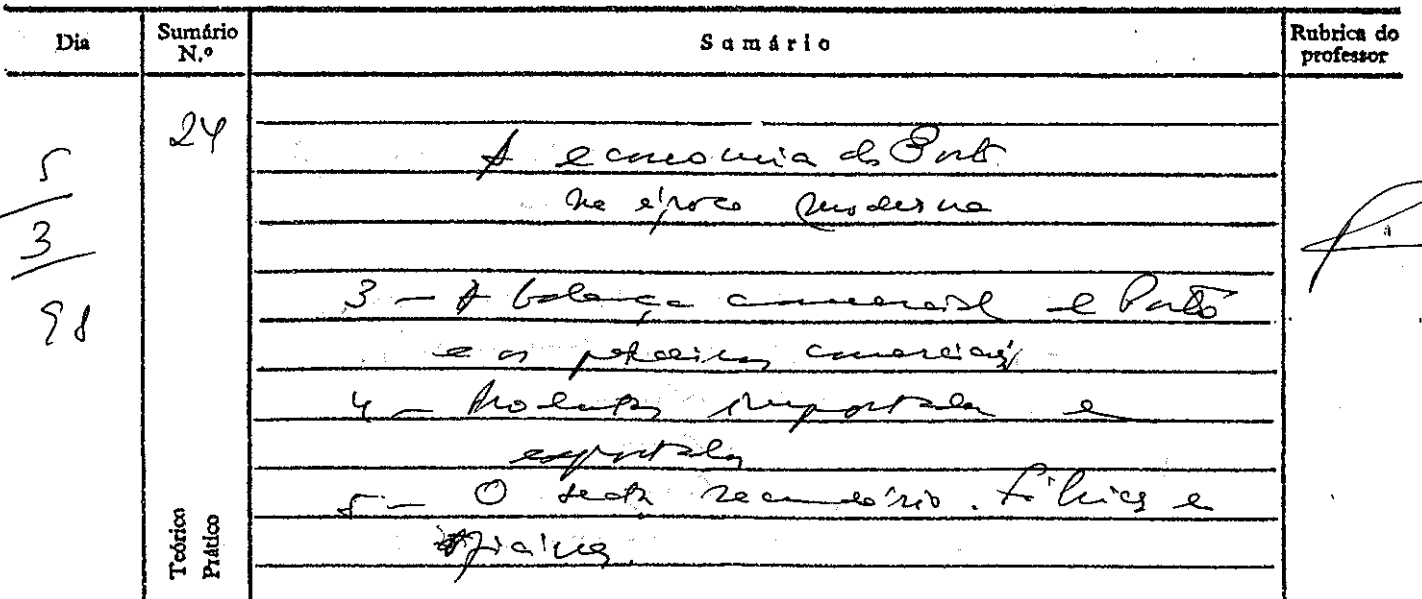 Dia
Sumário N.º
Sumário
Rubrica do professor
5
3
98
24
A economia do Porto
na época moderna
3 - A balança comercial e Porto
e os comerciais
4 - Produtos importados e
exportados
5 - O sector secundário. Fábricas e
oficinas.
Teórico
Prático